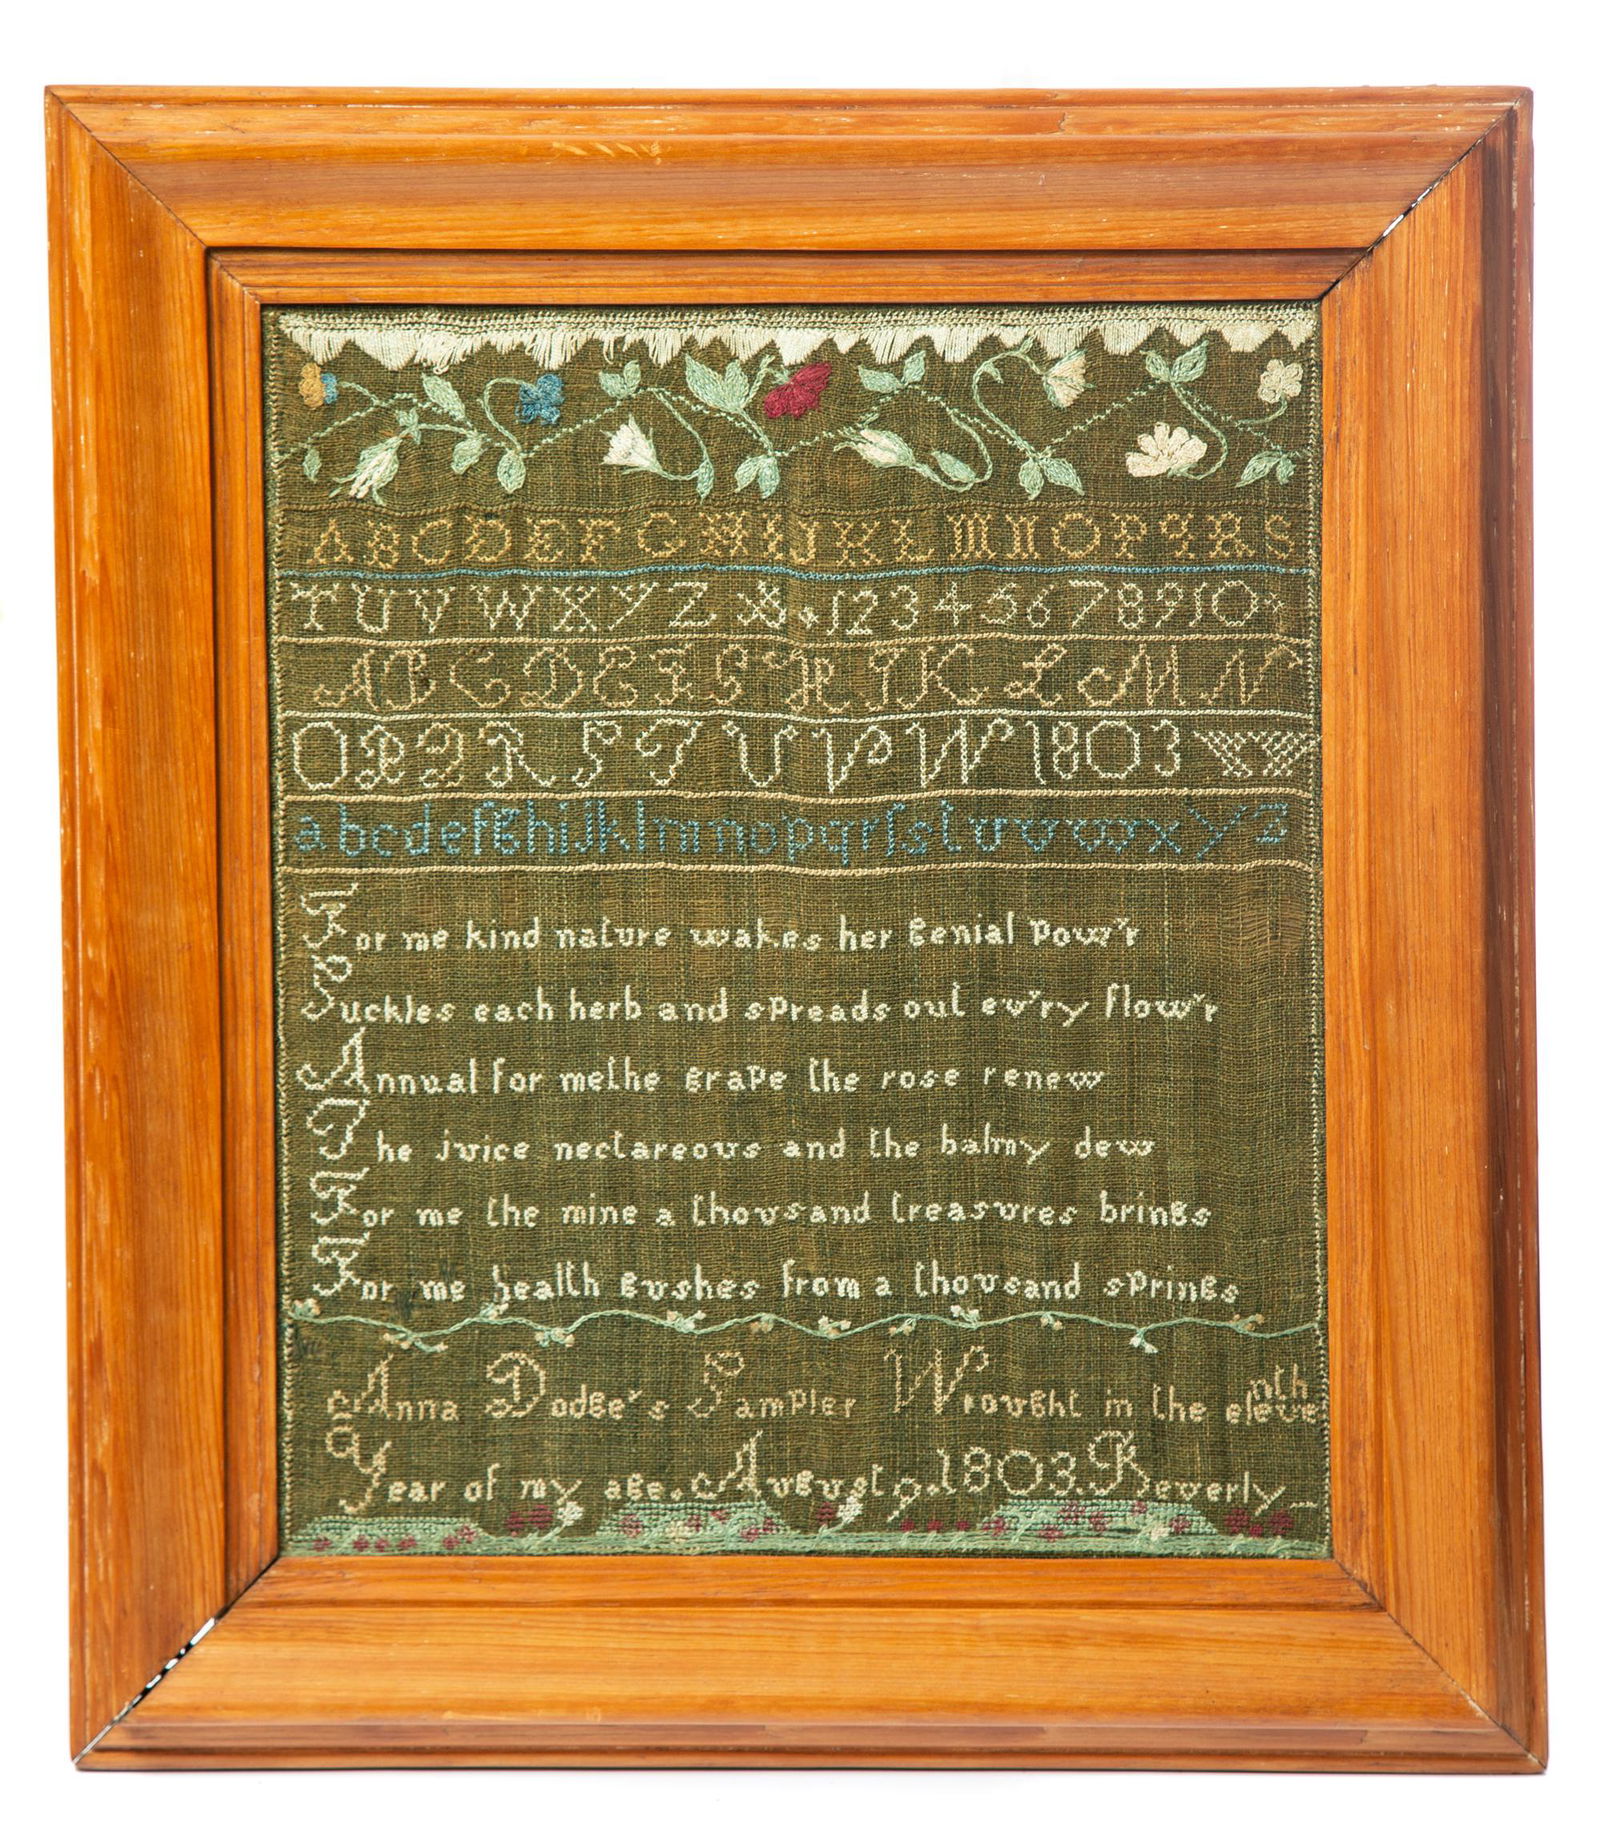 ABCDEFGHIJKLMNOPQRS
TUVWXYZ&.12345678910
ABCDEFGHIJKLMN
OPQRSTUVW1803
abcdefghijklmnopqrſstuvwxyz
For me kind nature wakes her genial pow'r
Suckles each herb and spreads out ev'ry flow'r
Annual for me the grape the rose renew
The juice nectareous and the balmy dew
For me the mine a thousand treasures brings
For me health gushes from a thousand springs
Anna Dodge's Sampler Wrought in the eleventh
Year of my age. August 9. 1803. Beverly